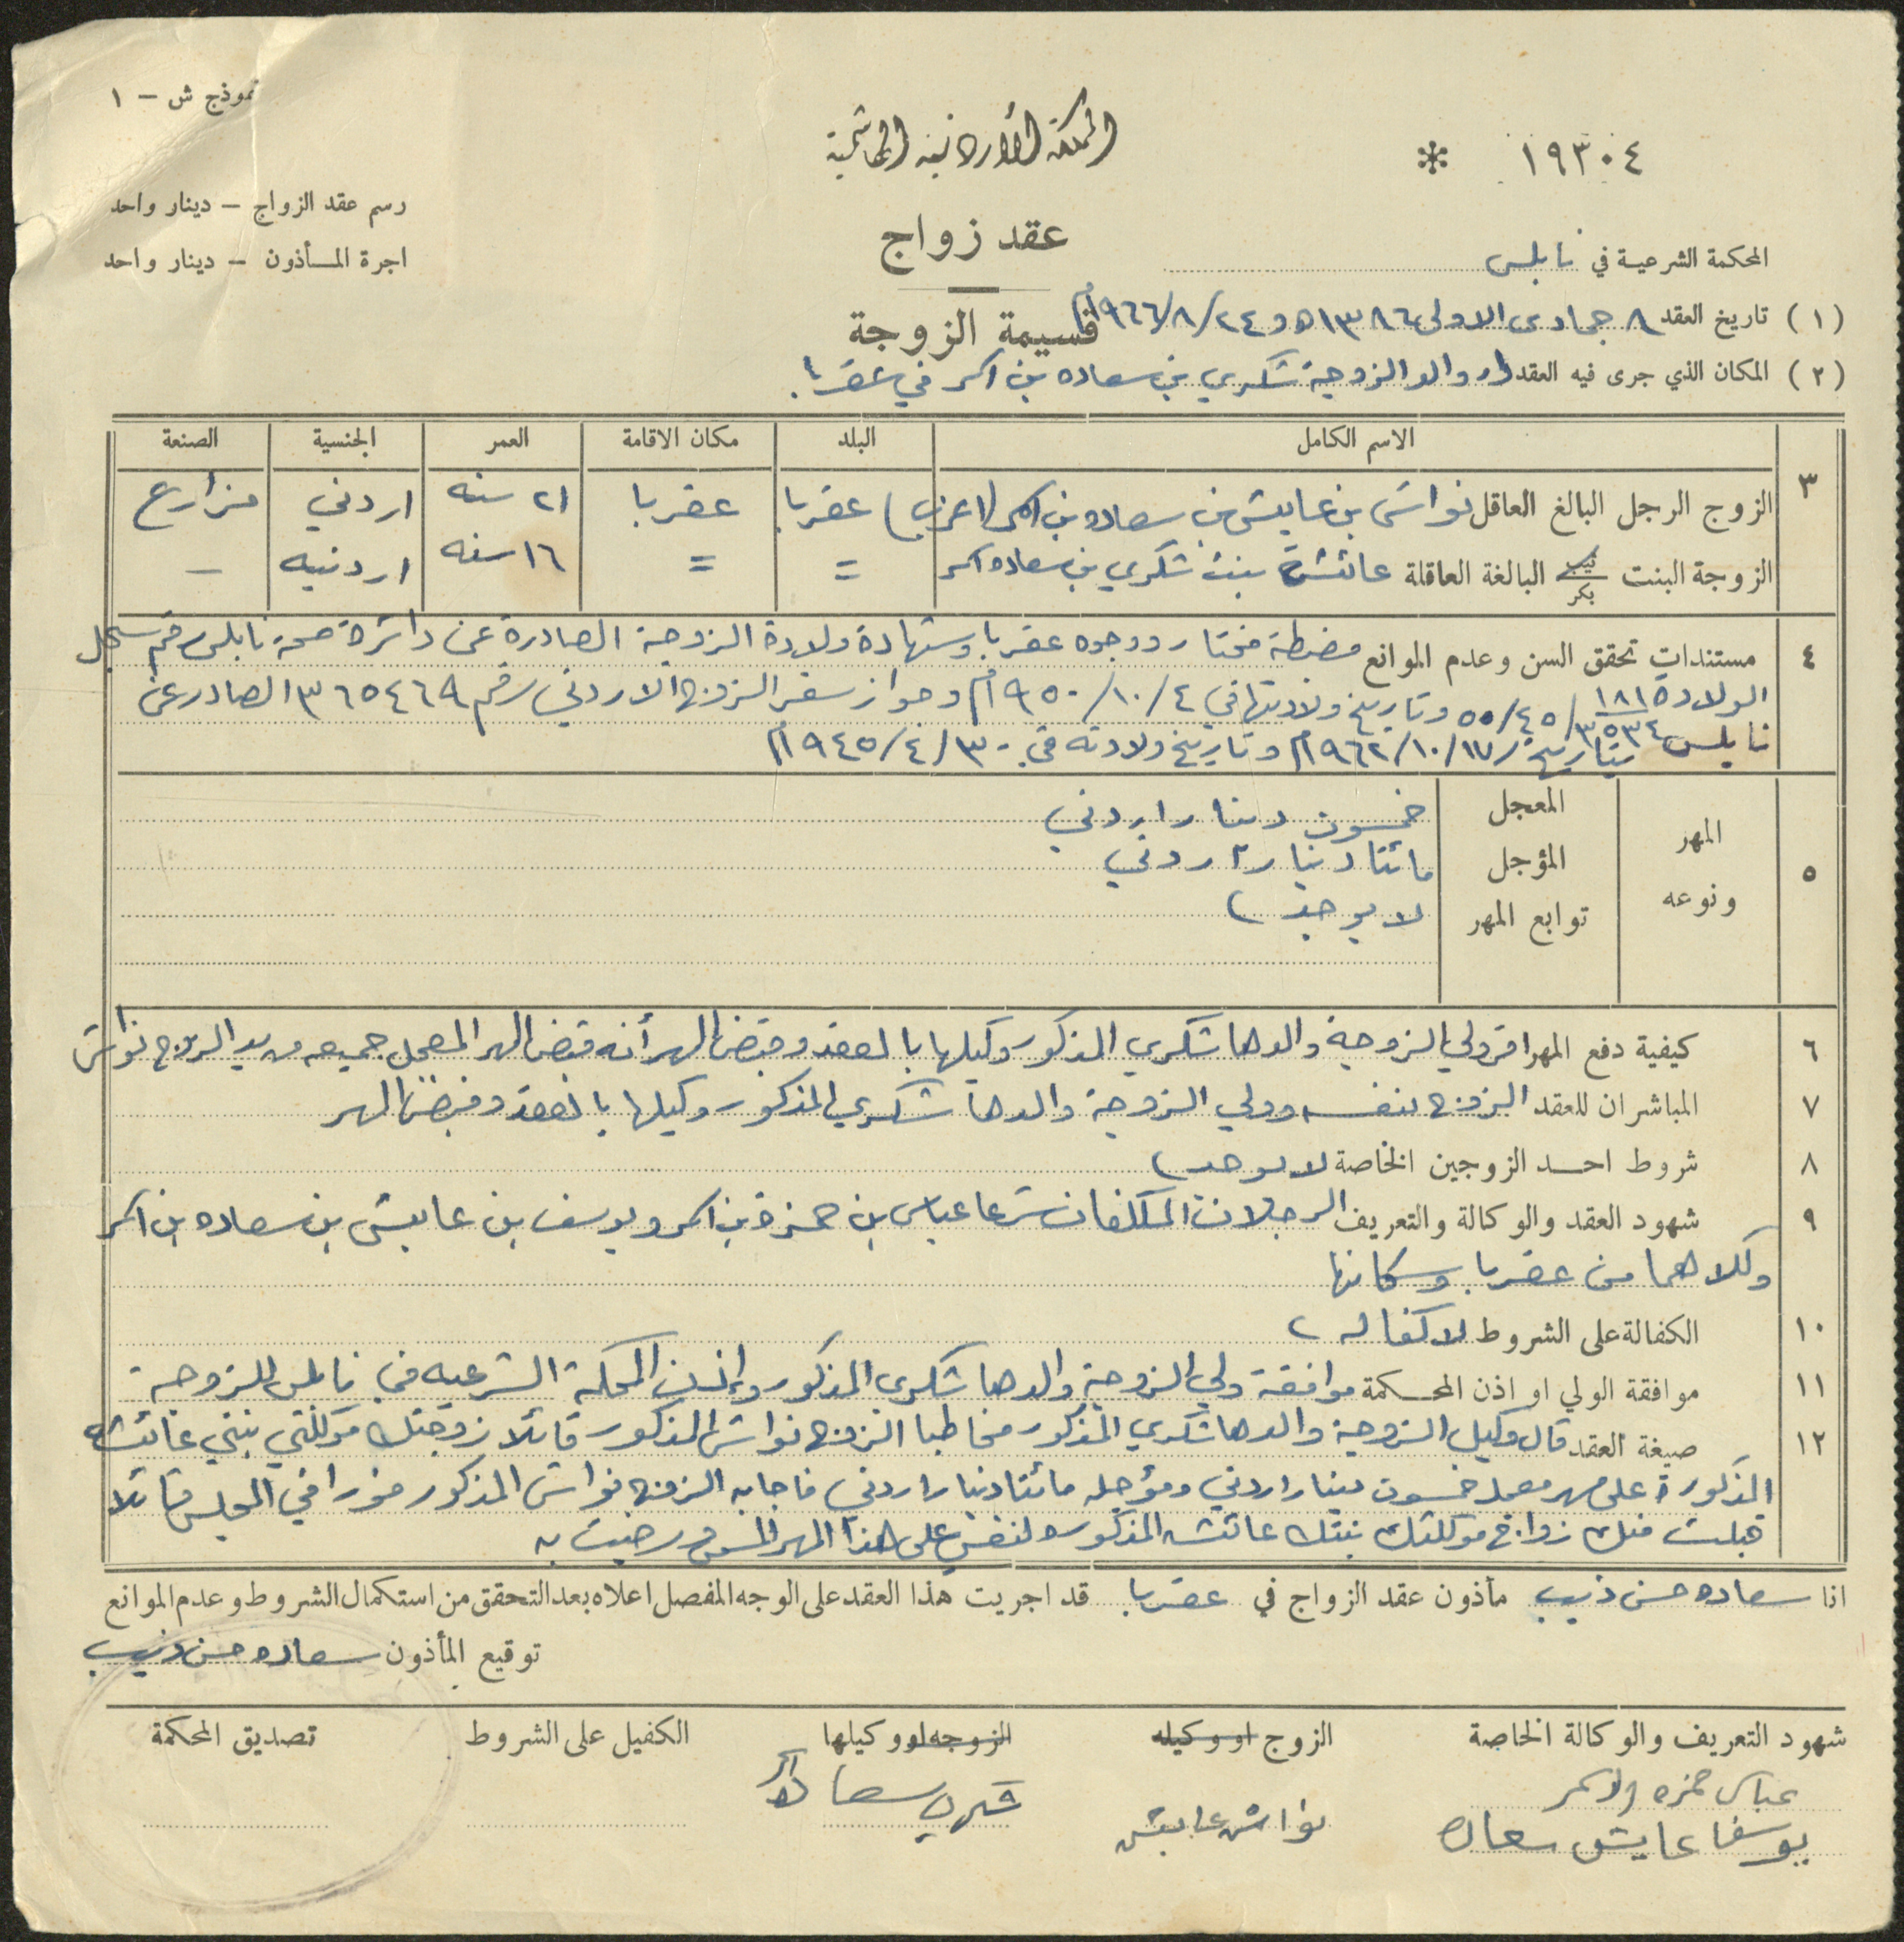 نموذج ش - ١
١٩٣٠٤ *
المملكة الأردنية الهاشمية
رسم عقد الزواج - دينار واحد
عقد زواج
اجرة المأذون - دينار واحد
المحكمة الشرعية في نابلس
قسيمة الزوجة
(١) تاريخ العقد ٨ جمادى الاولى ١٣٨٦ه و ٢٤/٨/٩٦٦ام
(٢) المكان الذي جرى فيه العقد دار والد الزوجة شكري بن سعاده بن اسمر في عقربا.
٣ الاسم الكامل البلد مكان الاقامة العمر الجنسية الصنعة
الزوج الرجل البالغ العاقل نواش بن عايش بن سعاده بن اسمر (اعزب) عقربا عقربا ٢١ سنه اردني مزارع
الزوجة البنت ثيب بكر البالغة العاقلة عائشة بنت شكري بن سعاده اسمر = = ١٦ سنه اردنيه -
٤ مستندات تحقق السن وعدم الموانع مضبطة مختار ووجوه عقربا وشهادة ولادة الزوجة الصادرة عن دائرة صحة نابلس رقم سجل
الولاده ١٨١٥/٣٥٣٤ ٥٥/٤٥ وتاريخ ولادتها في ٤/١٠/٩٥٠ام وجواز سفر الزوج الاردني رقم ٣٦٥٤٦٩ الصادر عن
نابلس بتاريخ ١٧/١٠/٩٦٢ام وتاريخ ولادته في ٣٠/٤/٩٤٥ام
٥ المهر ونوعه
المعجل خمسون دينار اردني
المؤجل مائتا دينار اردني
توابع المهر لا يوجد
٦ كيفية دفع المهر اقر ولي الزوجة والدها شكري المذكور وكيلها بالعقد وقبض المهر أنه قبض المهر المعجل جميعه من يد الزوج نواش
٧ المباشران للعقد الزوج بنفسه وولي الزوجة والدها شكري المذكور وكيلها بالعقد وقبض المهر
٨ شروط احد الزوجين الخاصة لا يوجد
٩ شهود العقد والوكالة والتعريف الرجلان المكلفان شرعا عباس بن حمزة بن اسمر ويوسف بن عايش بن سعاده بن اسمر
وكلاهما من عقربا وسكانها
١٠ الكفالة على الشروط لا كفاله
١١ موافقة الولي او اذن المحكمة موافقة ولي الزوجة والدها شكري المذكور وإذن المحكمة الشرعيه في نابلس للزوجة
١٢ صيغة العقد قال وكيل الزوجة والدها شكري المذكور مخاطبا الزوج نواش المذكور قائلا زوجتك موكلتي بنتي عائشه
المذكورة على مهر معجله خمسون دينار اردني ومؤجله مائتا دينار اردني فاجابه الزوج نواش المذكور فورا في المجلس قائلا
قبلت منك زواج موكلتك بنتك عائشه المذكوره لنفسي على هذا المهر المسمى ورضيت به
انا سعاده حسن ذيب مأذون عقد الزواج في عقربا قد اجريت هذا العقد على الوجه المفصل اعلاه بعد التحقق من استكمال الشروط وعدم الموانع
توقيع المأذون سعاده حسن ذيب
شهود التعريف والوكالة الخاصة الزوج او وكيله الزوجه او وكيلها الكفيل على الشروط تصديق المحكمة
عباس حمزه الاسمر
يوسف عايش سعاده نواش عايش شكري سعاده